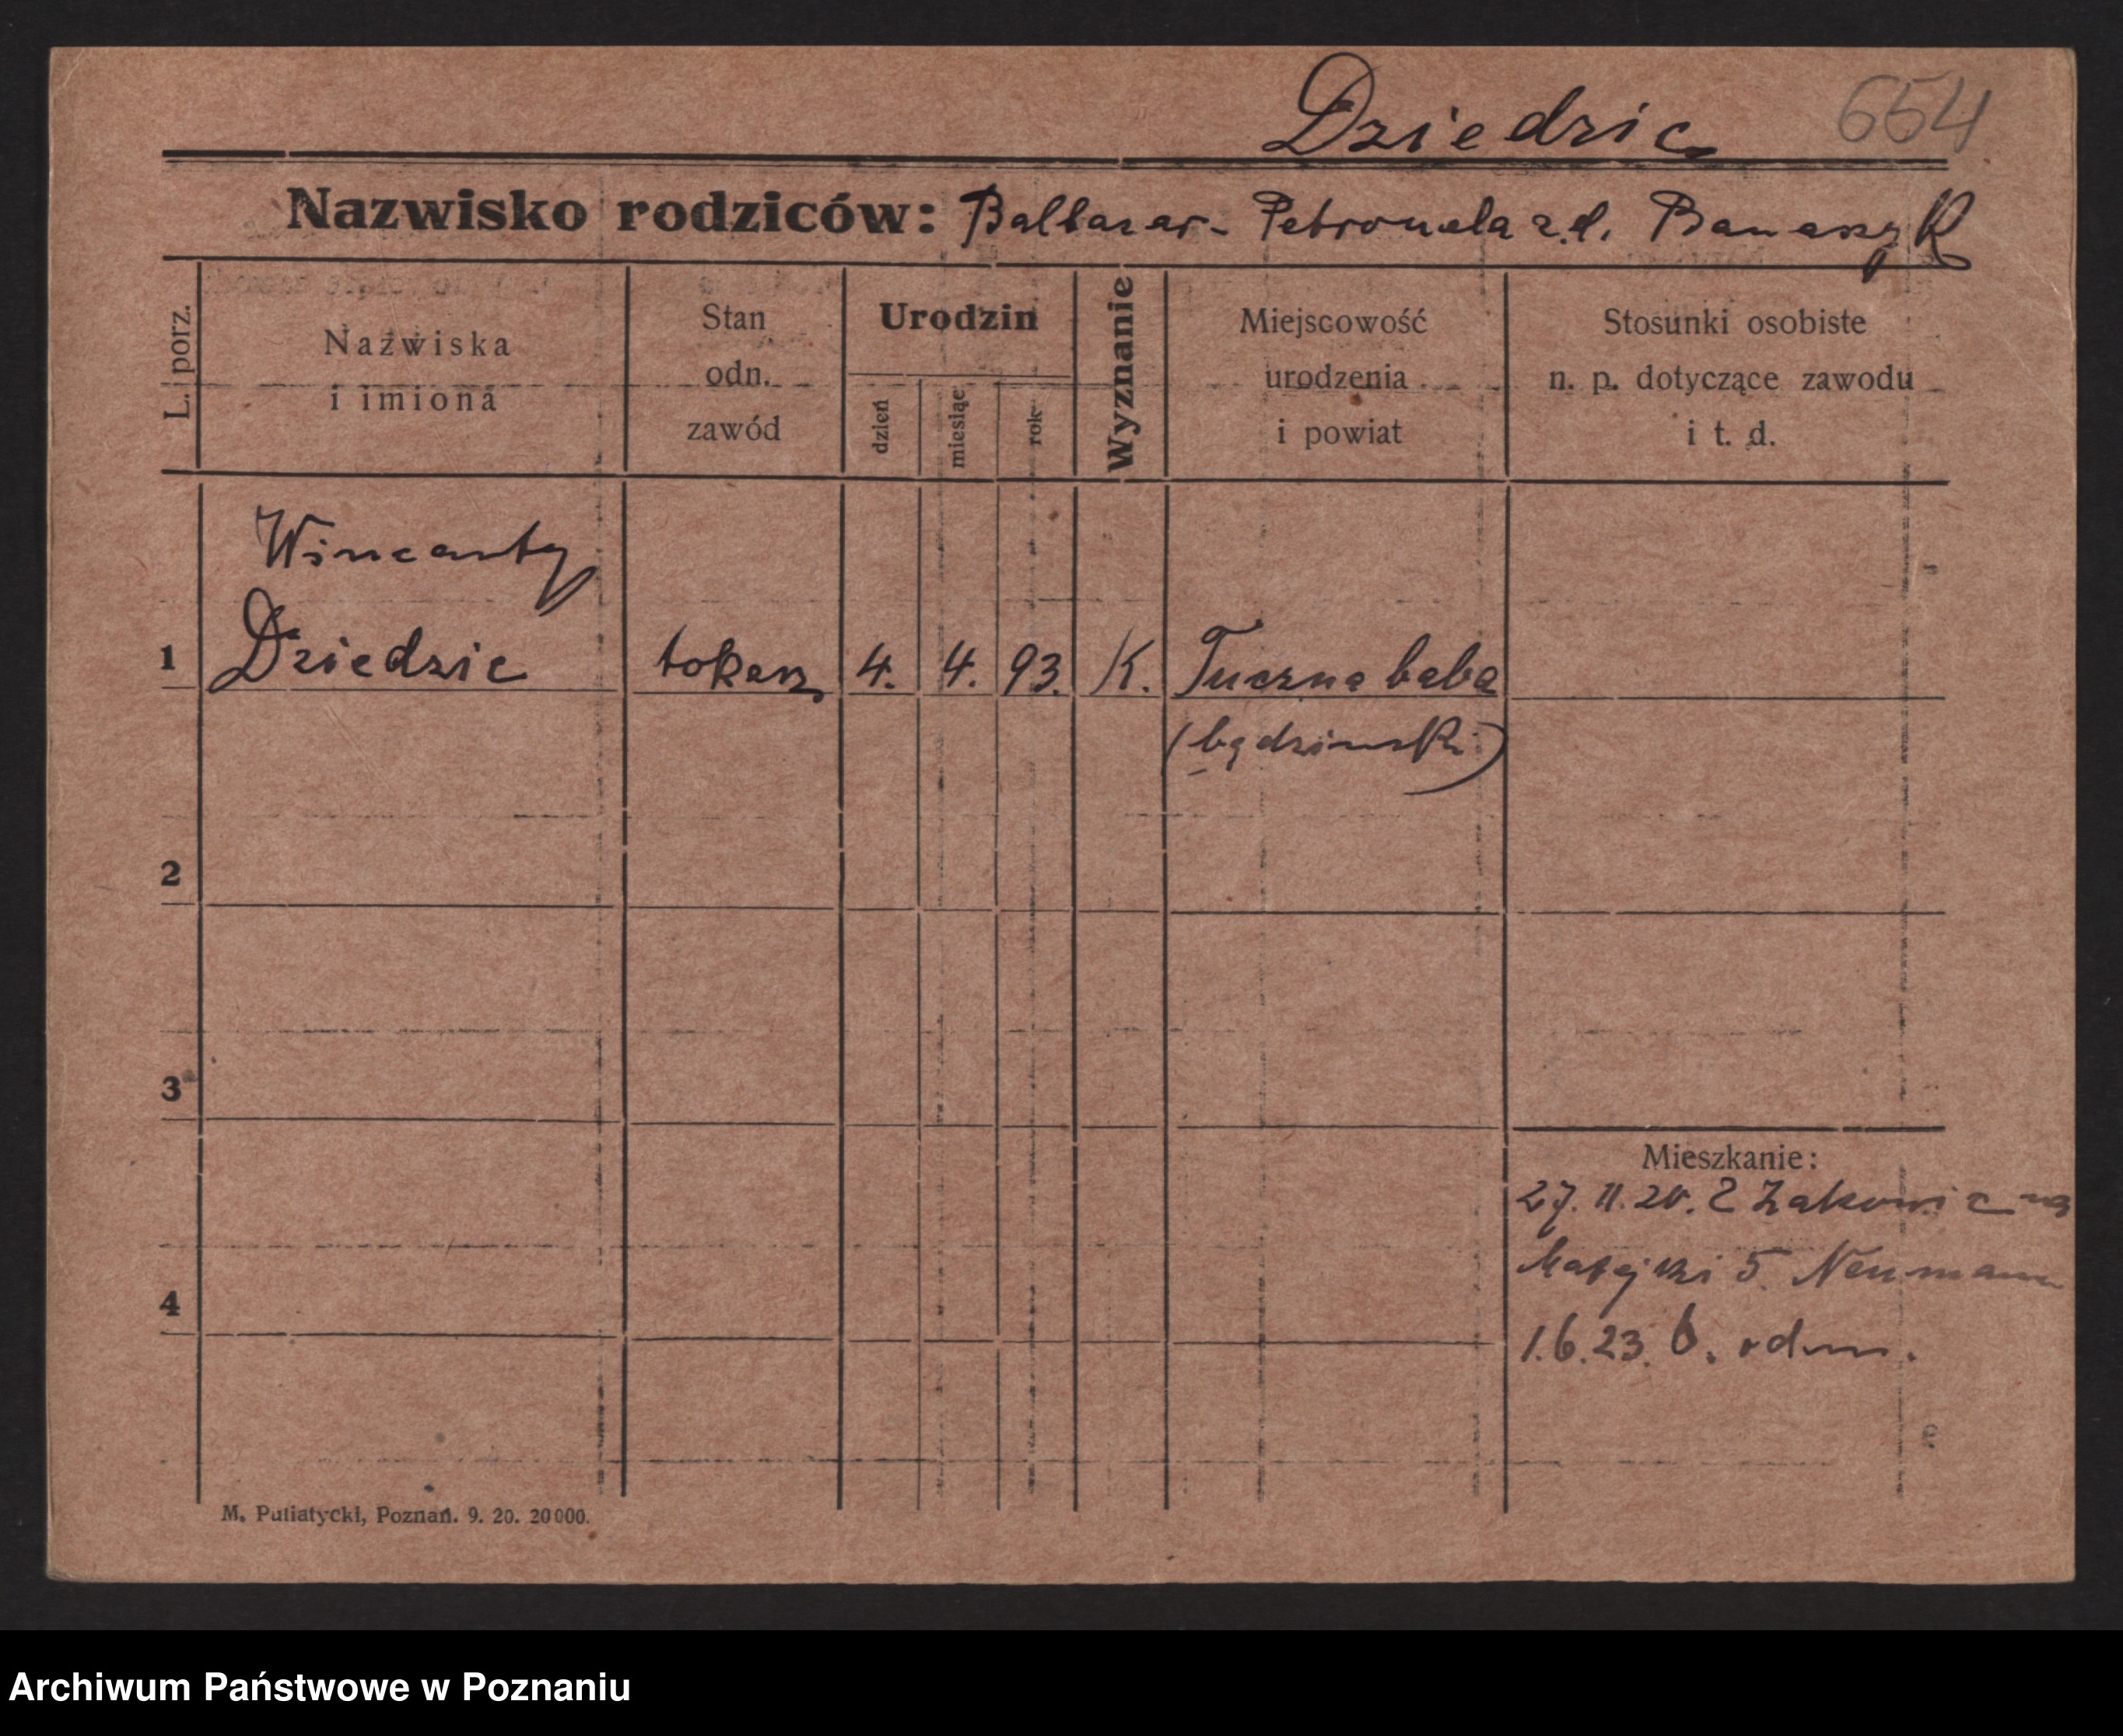 Dziedzic 654
Nazwisko rodziców: Baltazar - Petronela z.d. Banaszyk
L. porz.
Nazwiska
i imiona
Stan
odn.
zawód
Urodzin
dzień
miesiąc
rok
Wyznanie
Miejscowość
urodzenia
i powiat
Stosunki osobiste
n. p. dotyczące zawodu
i t. d.
Wincenty
1 Dziedzic tokarz 4. 4. 93. K. Tuczna baba
(będzinski)
2
3
Mieszkanie:
27. 11. 20. Z
Matejki 5. Neumann
4
1.6.23. odm.
M. Putiatycki, Poznań. 9. 20. 20000.
Archiwum Państwowe w Poznaniu